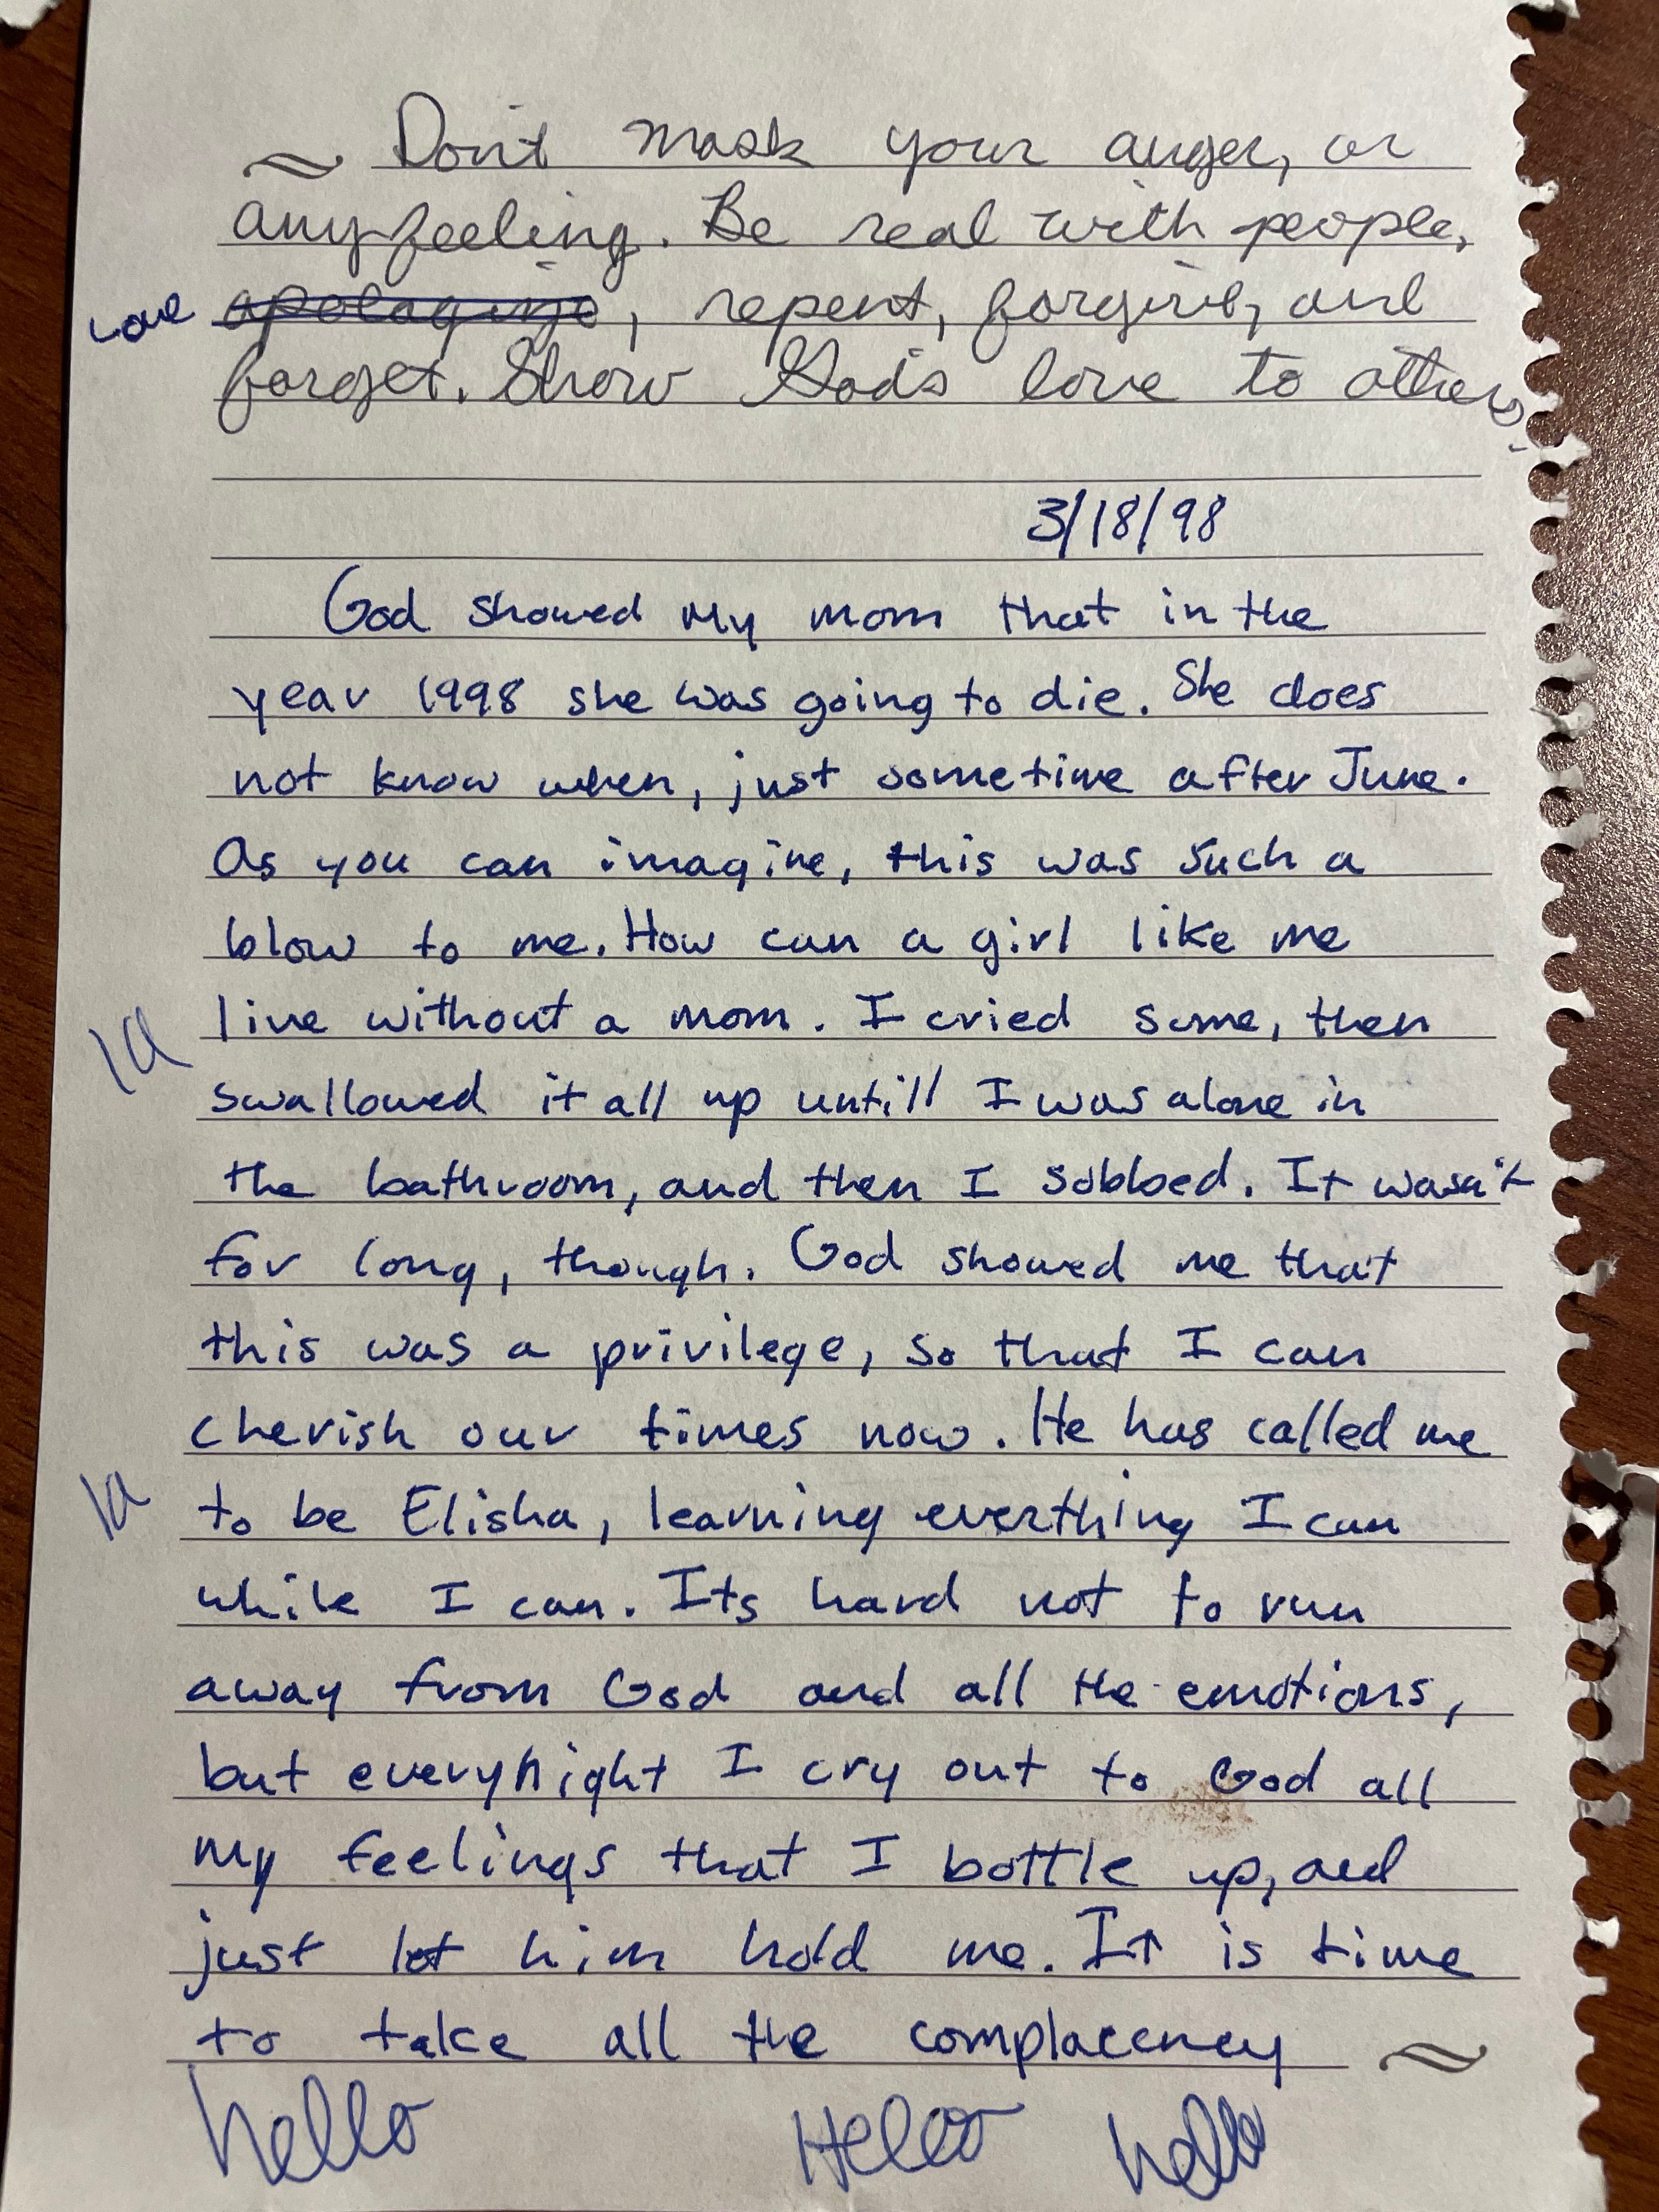 Don't mask your anger, or
any feeling. Be real with people,
Love apologize, repent, forgive, and
forget. Show God's love to others.
3/18/98
God showed my mom that in the
year 1998 she was going to die. She does
not know when, just sometime after June.
As you can imagine, this was such a
blow to me. How can a girl like me
live without a mom. I cried some, then
swallowed it all up untill I was alone in
the bathroom, and then I sobbed. It wasn't
for long, though. God showed me that
this was a privilege, so that I can
cherish our times now. He has called me
to be Elisha, learning everthing I can
while I can. Its hard not to run
away from God and all the emotions,
but everynight I cry out to God all
my feelings that I bottle up, and
just let him hold me. It is time
to take all the complacency
hello Hello hello